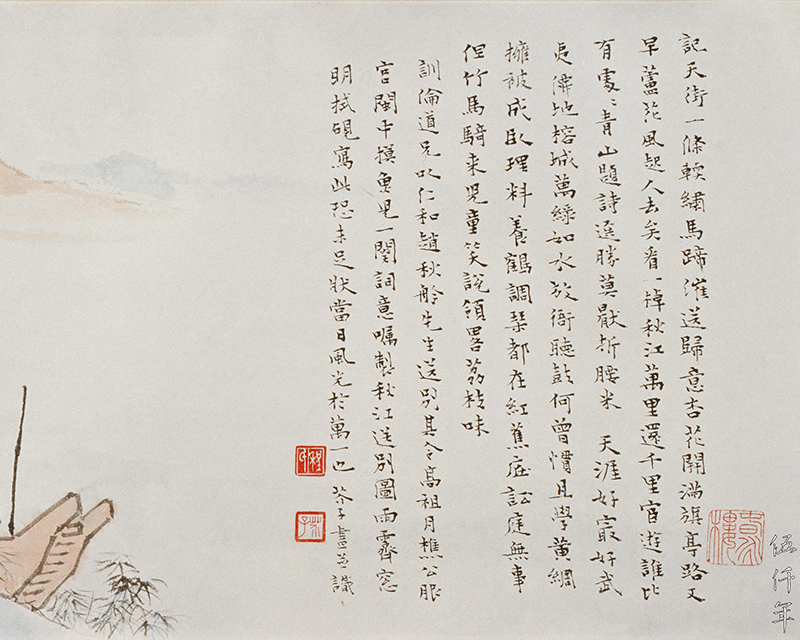 記天街一條輭繡馬蹄催送歸意杏花開滿旗亭路又
早蘆花風起人去矣看一棹秋江萬里還千里宦遊誰比
有處〻青山題詩選勝莫厭折腰米 天涯好最好武
夷佛地榕城萬綠如水放衙聽鼓何曾慣且學黃綢
擁被成臥理料養鶴調琴都在紅蕉底訟庭無事
但竹馬騎來兒童笑說領畧荔枝味
訓倫道兄以仁和趙秋舲先生送別其令高祖月樵公服
官閩中摸魚兒一闋詞意囑製秋江送別圖雨霽窓
明拭硯寫此恐未足狀當日風光於萬一也 芥子畫并識
伍仟年